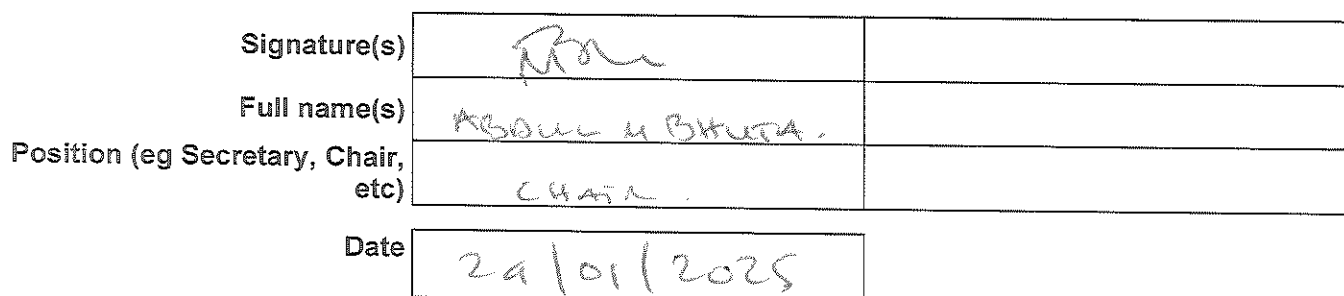 Signature(s)
Full name(s) ABDUL M BHUTA.
Position (eg Secretary, Chair,
etc) CHAIR.
Date 29/01/2025